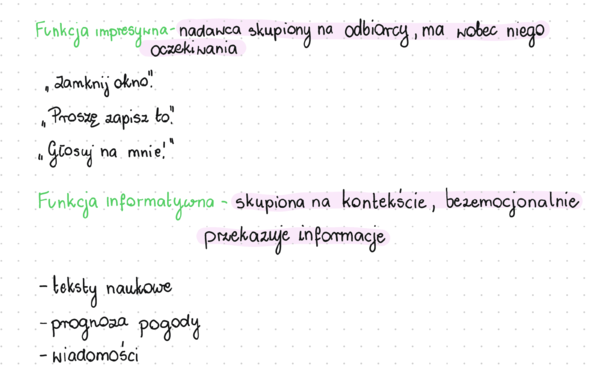 Funkcja impresywna - nadawca skupiony na odbiorcy, ma wobec niego
oczekiwania
„Zamknij okno."
„Proszę zapisz to."
„Głosuj na mnie!"
Funkcja informatywna - skupiona na kontekście, bezemocjonalnie
przekazuje informacje
- teksty naukowe
- prognoza pogody
- wiadomości